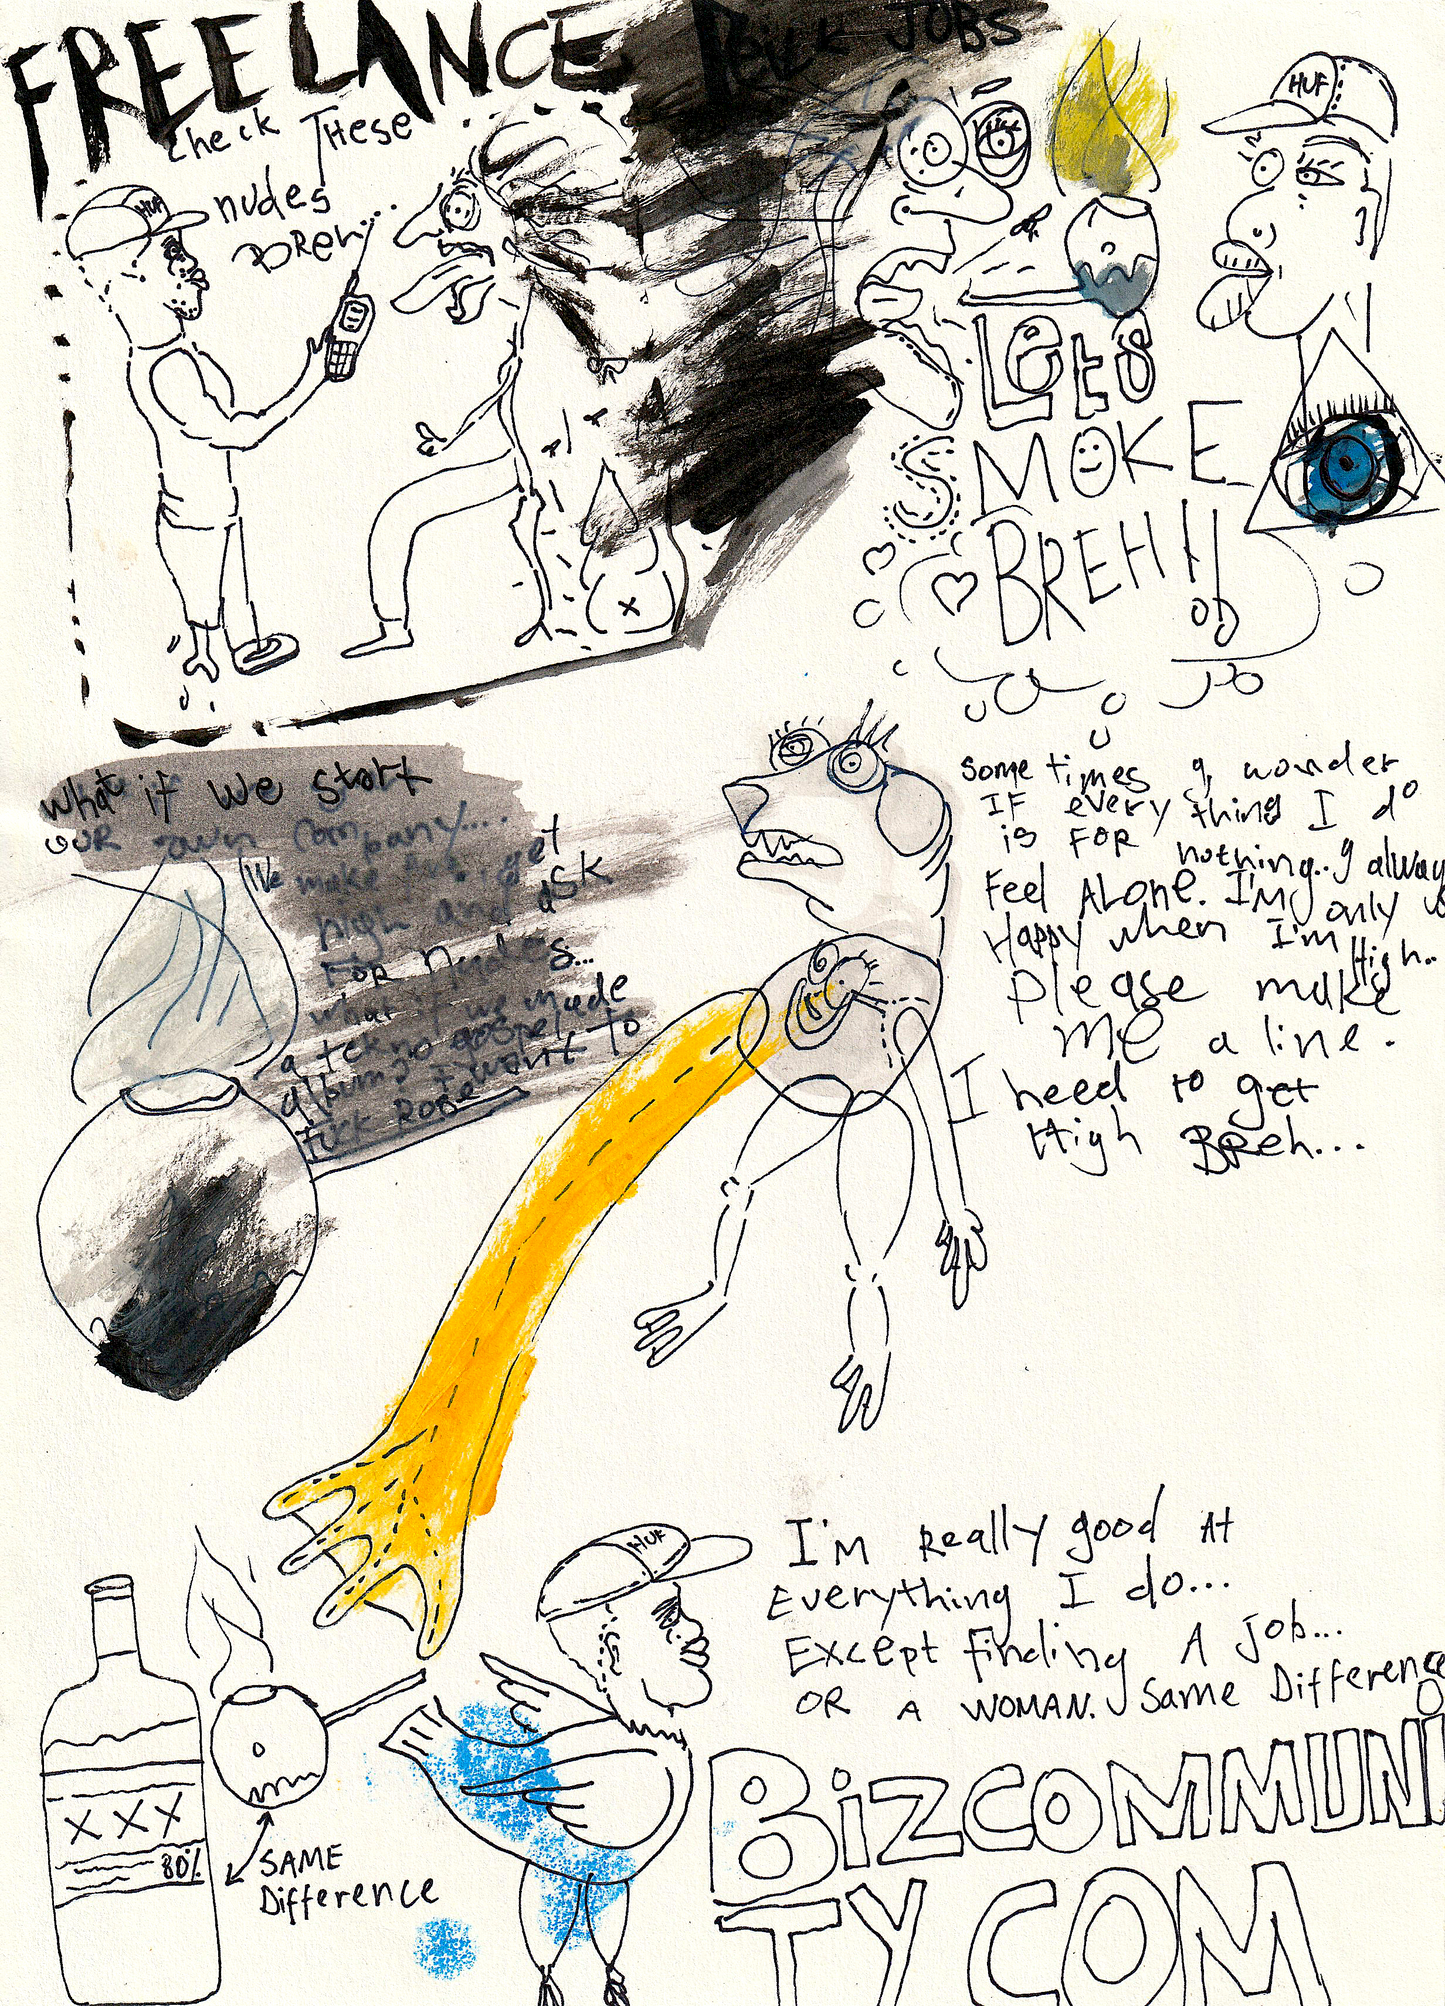 FREELANCE JOBS
Check These
nudes
BReh
HUF
HUF
Lets
SMOKE
BREH!!
What if we start
OUR own company....
We make get
high and ask
FOR nudes...
what if we made
a tekno gospel
album? I want to
Some times I wonder
IF every thing I do
is FOR nothing.. I always
Feel ALONE. I'm only
Happy when I'm High..
Please make
me a line.
I need to get
High BReh...
HUF
I'm really good At
Everything I do...
Except finding A job...
OR A WOMAN. Same Difference
XXX
80%
SAME
Difference
BizCOMMUNi
TY COM